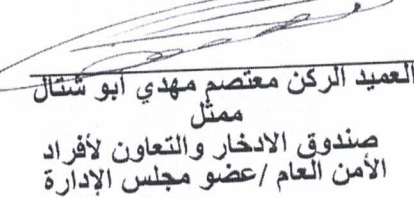 العميد الركن معتصم مهدي أبو شتال
ممثل
صندوق الادخار والتعاون لأفراد
الأمن العام /عضو مجلس الإدارة